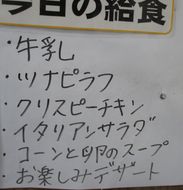 今日の給食
・牛乳
・ツナピラフ
・クリスピーチキン
・イタリアンサラダ
・コーンと卵のスープ
・お楽しみデザート